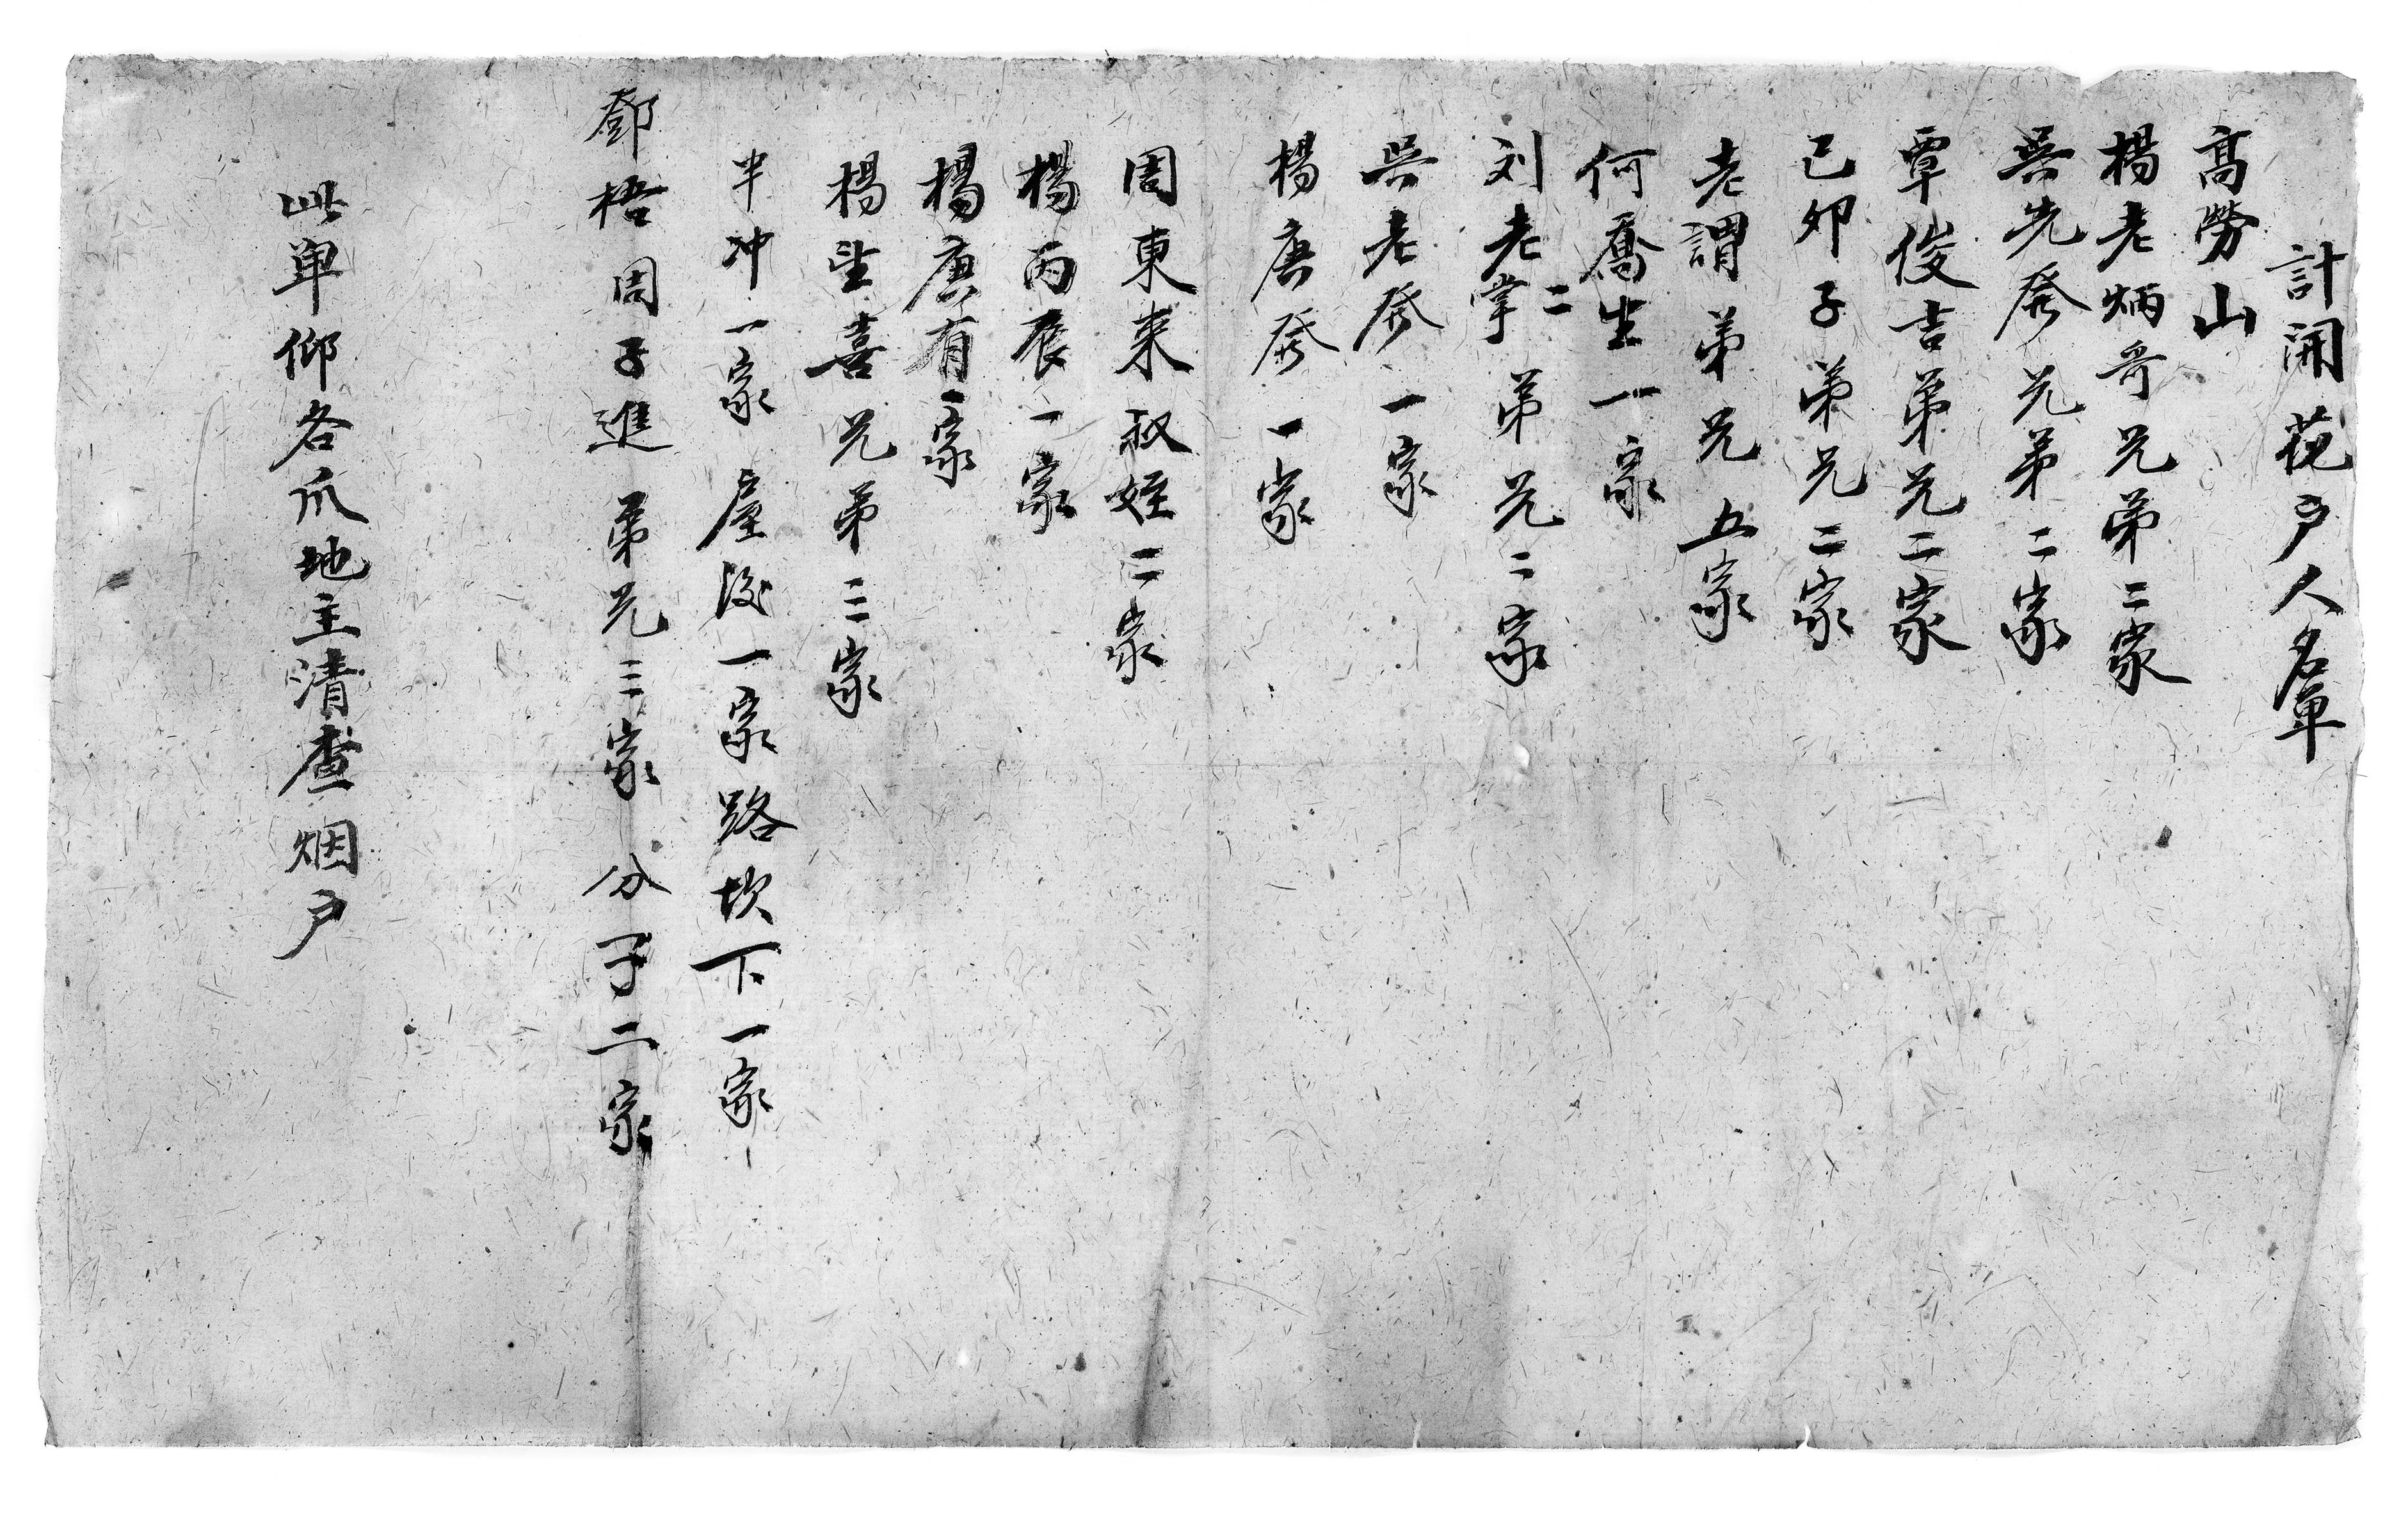 計開花户人名单
髙勞山
楊老炳哥兄弟二家
吴先發兄弟二家
覃俊吉弟兄二家
己卯子弟兄二家
老謂弟兄五家
何喬生一家
刘老掌二弟兄二家
吴老發一家
楊唐發一家
周東来叔姪二家
楊丙辰一家
楊唐有一家
楊里喜兄弟三家
半冲一家屋後一家路坎下一家
鄧梧周子進弟兄三家分子二家
此单仰各爪地主清查烟户